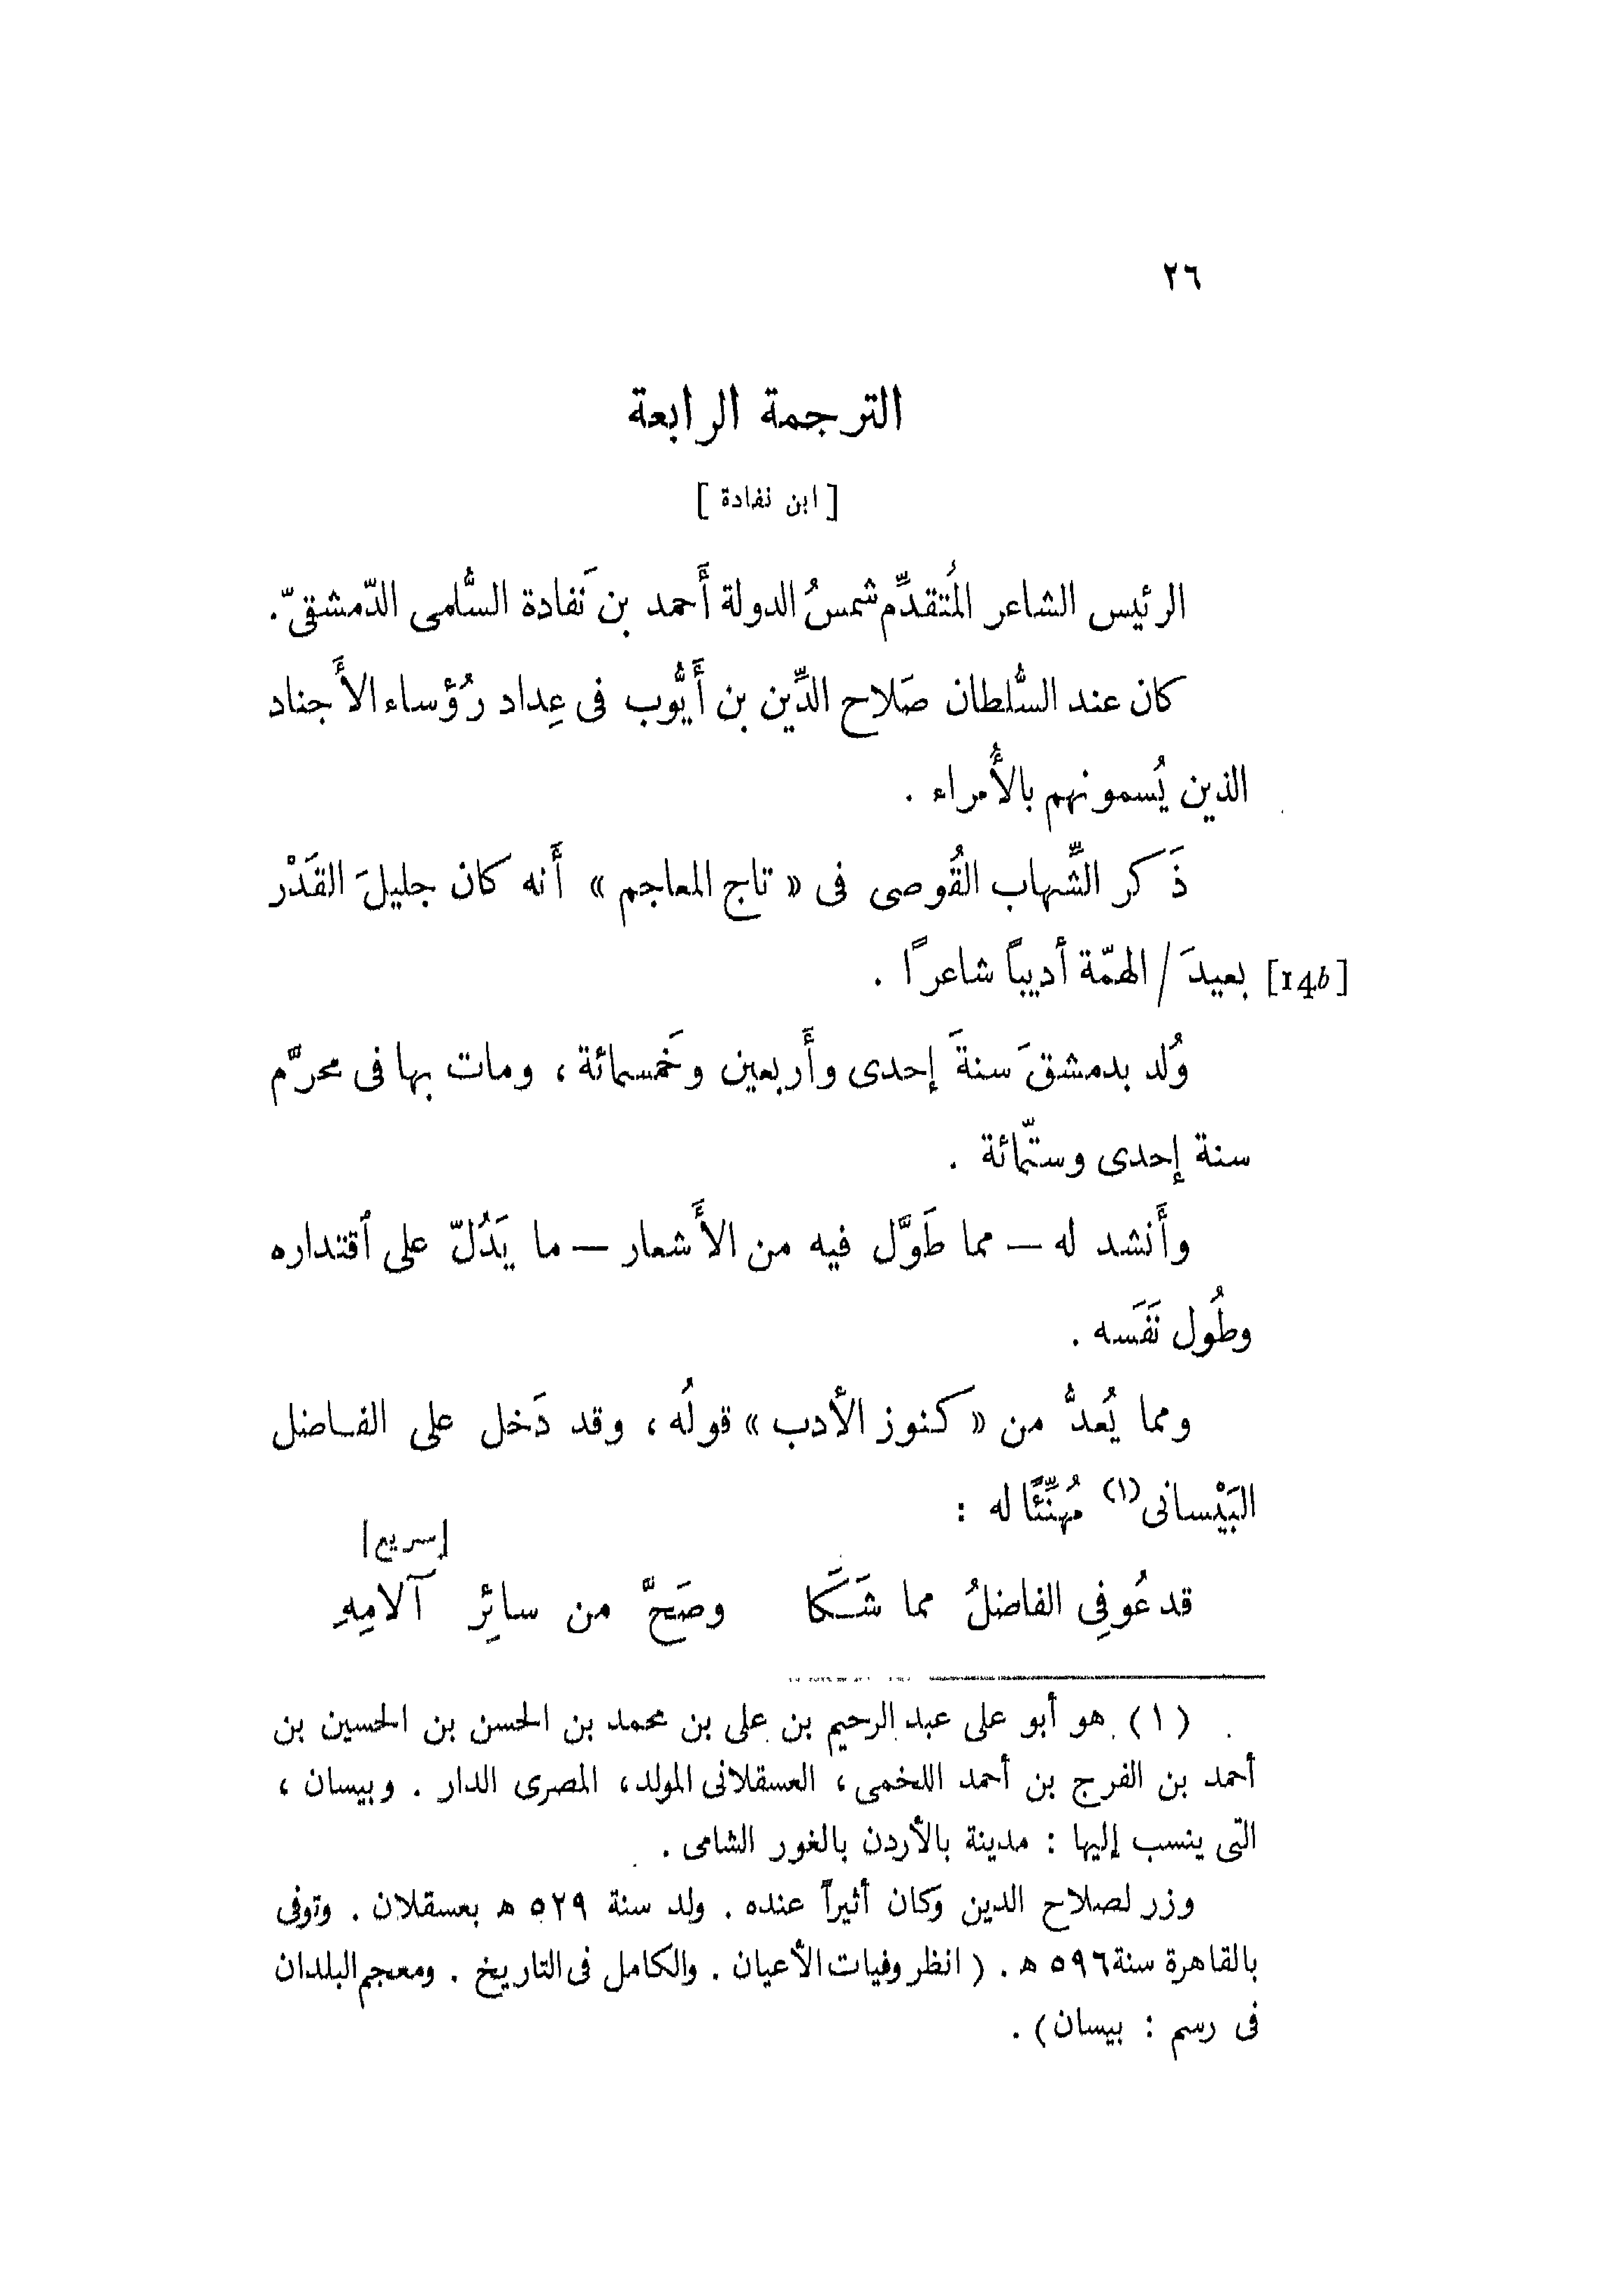 ٢٦
الترجمة الرابعة
[ ابن نفادة ]
الرئيس الشاعر المُتقدِّم شمسُ الدولة أَحمد بن نَفادة السُّلمى الدّمشقىّ.
كان عند السُّلطان صَلاح الدِّين بن أَيُّوب فى عِداد رُؤساء الأَجناد
الذين يُسمونهم بالأُمراء .
ذَكر الشِّهاب القُوصى فى « تاج المعاجم » أَنه كان جليلَ القَدْر
[14b] بعيدَ / الهمّة أديباً شاعرًا .
وُلد بدمشقَ سنةَ إحدى وأَربعين وخَمسمائة ، ومات بها فى محرّم
سنة إحدى وستّمائة .
وأَنشد له — مما طَوَّل فيه من الأَشعار — ما يَدُلّ على ٱقتداره
وطُول نَفَسه .
ومما يُعدُّ من « كنوز الأدب » قولُه ، وقد دَخل على الفـاضل
البَيْسانى(١) مُهنِّئًا له :
[سريع]
قد عُوفِى الفاضلُ مما شَـكَا وصَحَّ من سائِر آلامِهِ
(١) هو أبو على عبد الرحيم بن على بن محمد بن الحسن بن الحسين بن
أحمد بن الفرج بن أحمد اللخمى ، العسقلانى المولد ، المصرى الدار . وبيسان ،
التى ينسب إليها : مدينة بالأردن بالغور الشامى .
وزر لصلاح الدين وكان أثيراً عنده . ولد سنة ٥٢٩ ه بعسقلان . وتوفى
بالقاهرة سنة ٥٩٦ ه . ( انظر وفيات الأعيان . والكامل فى التاريخ . ومعجم البلدان
فى رسم : بيسان ) .